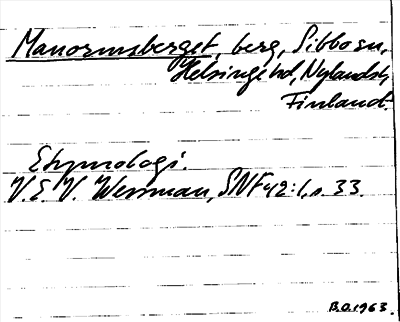 Manormsberget, berg, Sibbo sn,
Helsinge hd, Nylands l,
Finland.
Etymologi.
V.E.V. Wessman, SNF 42:1, s. 33.
B.O. 1963.